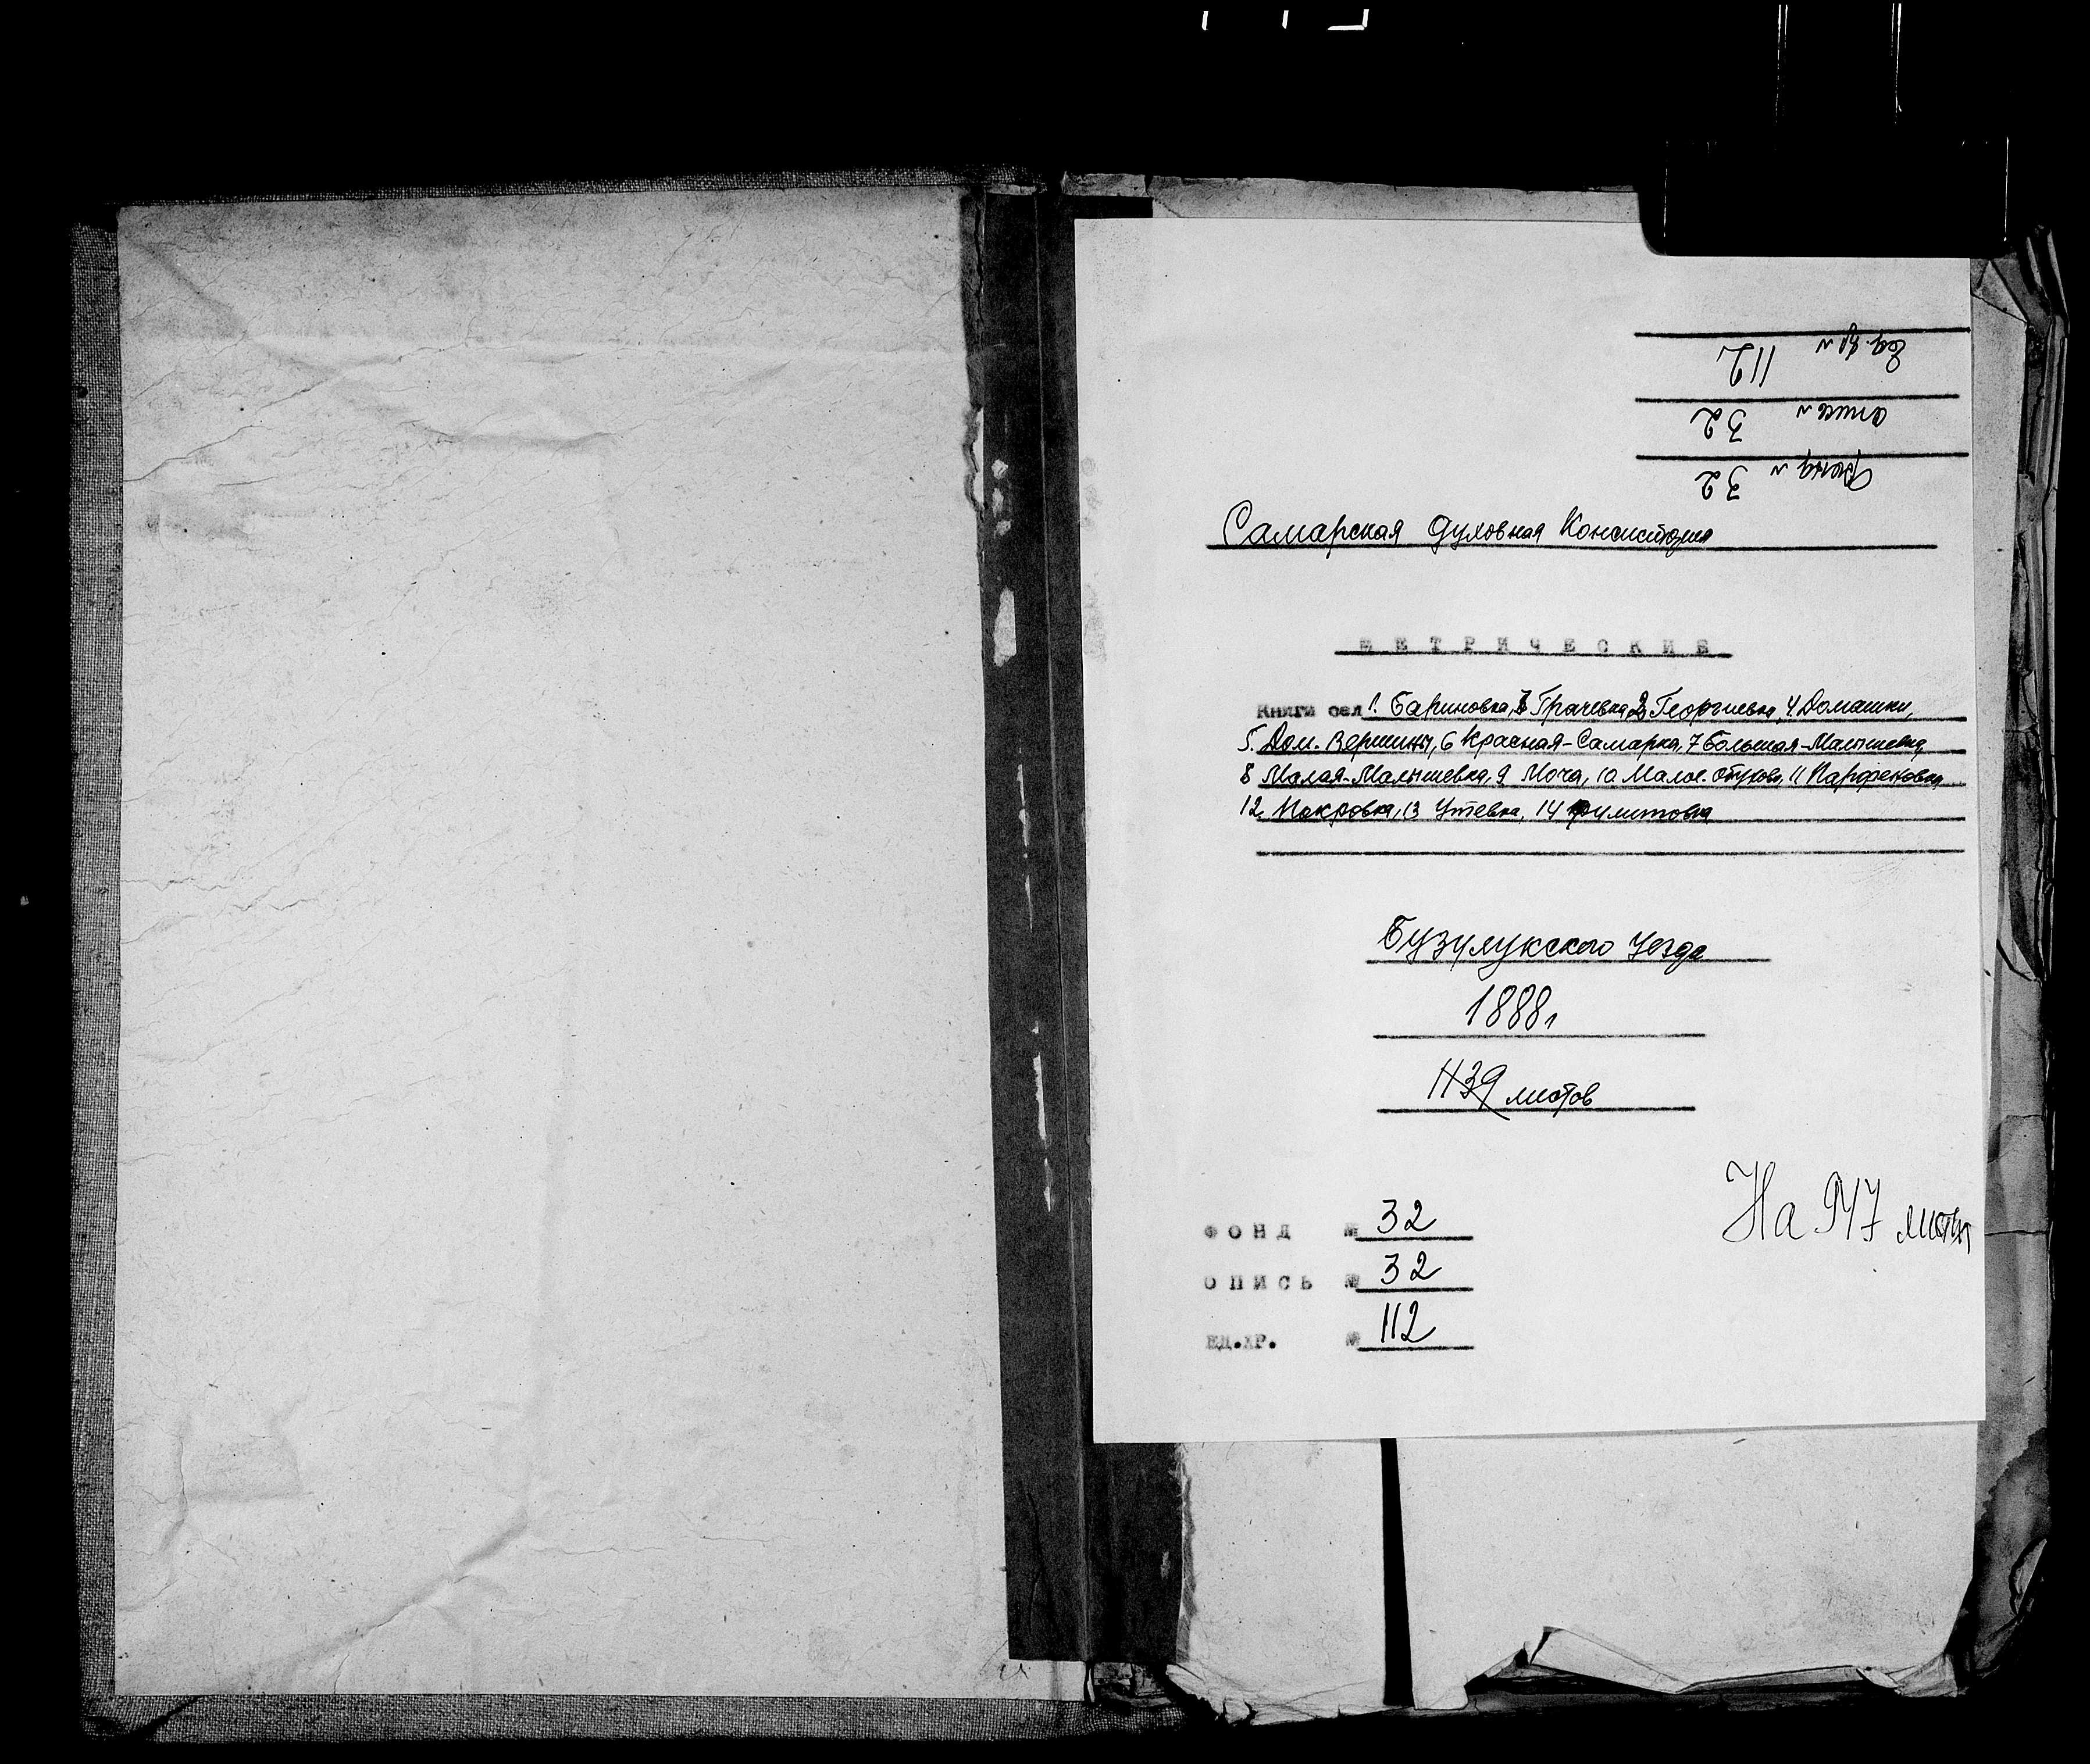 Ед. хр №  112
опись №  32
Фонд №  32
Самарская духовная Консистория
МЕТРИЧЕСКИЕ
Книги сел 1. Бариновка, 3 Грачевка, 2 Георгиевка, 4 Домашки,
5. Дом. Вершины, 6 Красная-Самарка, 7 Большая-Малышевка,
8 Малая-Малышевка, 9 Моча, 10 Малое. 11 Парфеновка,
12 Покровка, 13 Утевка, 14
Бузулукского уезда
1888г
1139 листов
На 947 листах
ФОНД № 32
ОПИСЬ № 32
ЕД.ХР. № 112